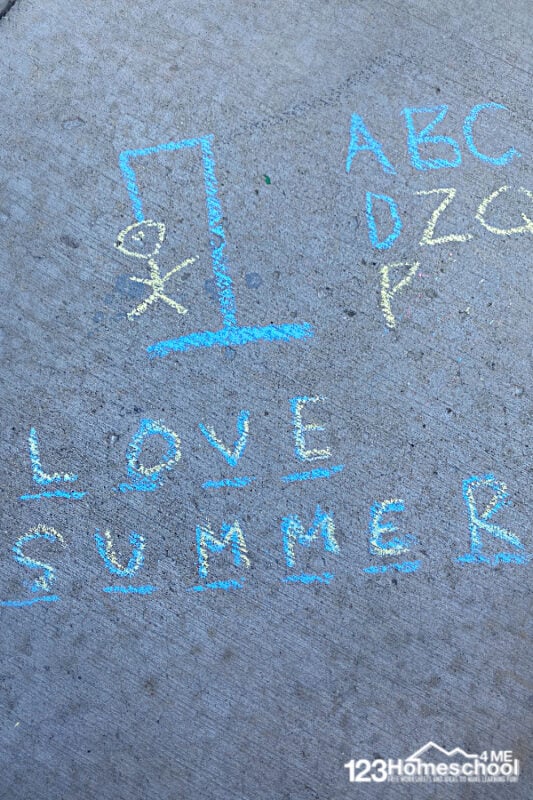 ABC
DZQ
P
LOVE
SUMMER
123Homeschool4ME
FREE WORKSHEETS AND IDEAS TO MAKE LEARNING FUN!